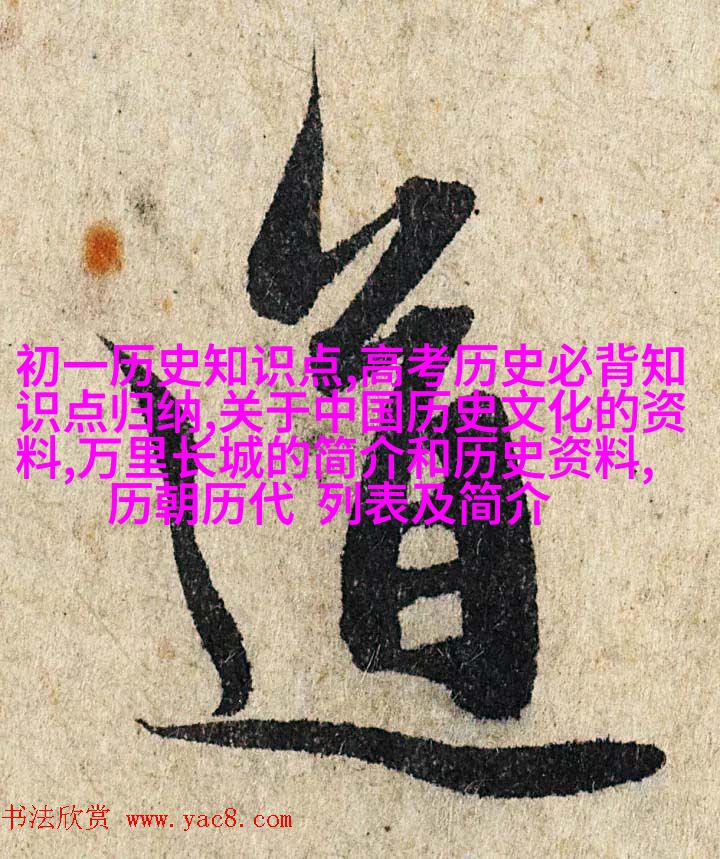 道
初一历史知识点,高考历史必背知
识点归纳,关于中国历史文化的资
料,万里长城的简介和历史资料,
历朝历代 列表及简介
书法欣赏 www.yac8.com